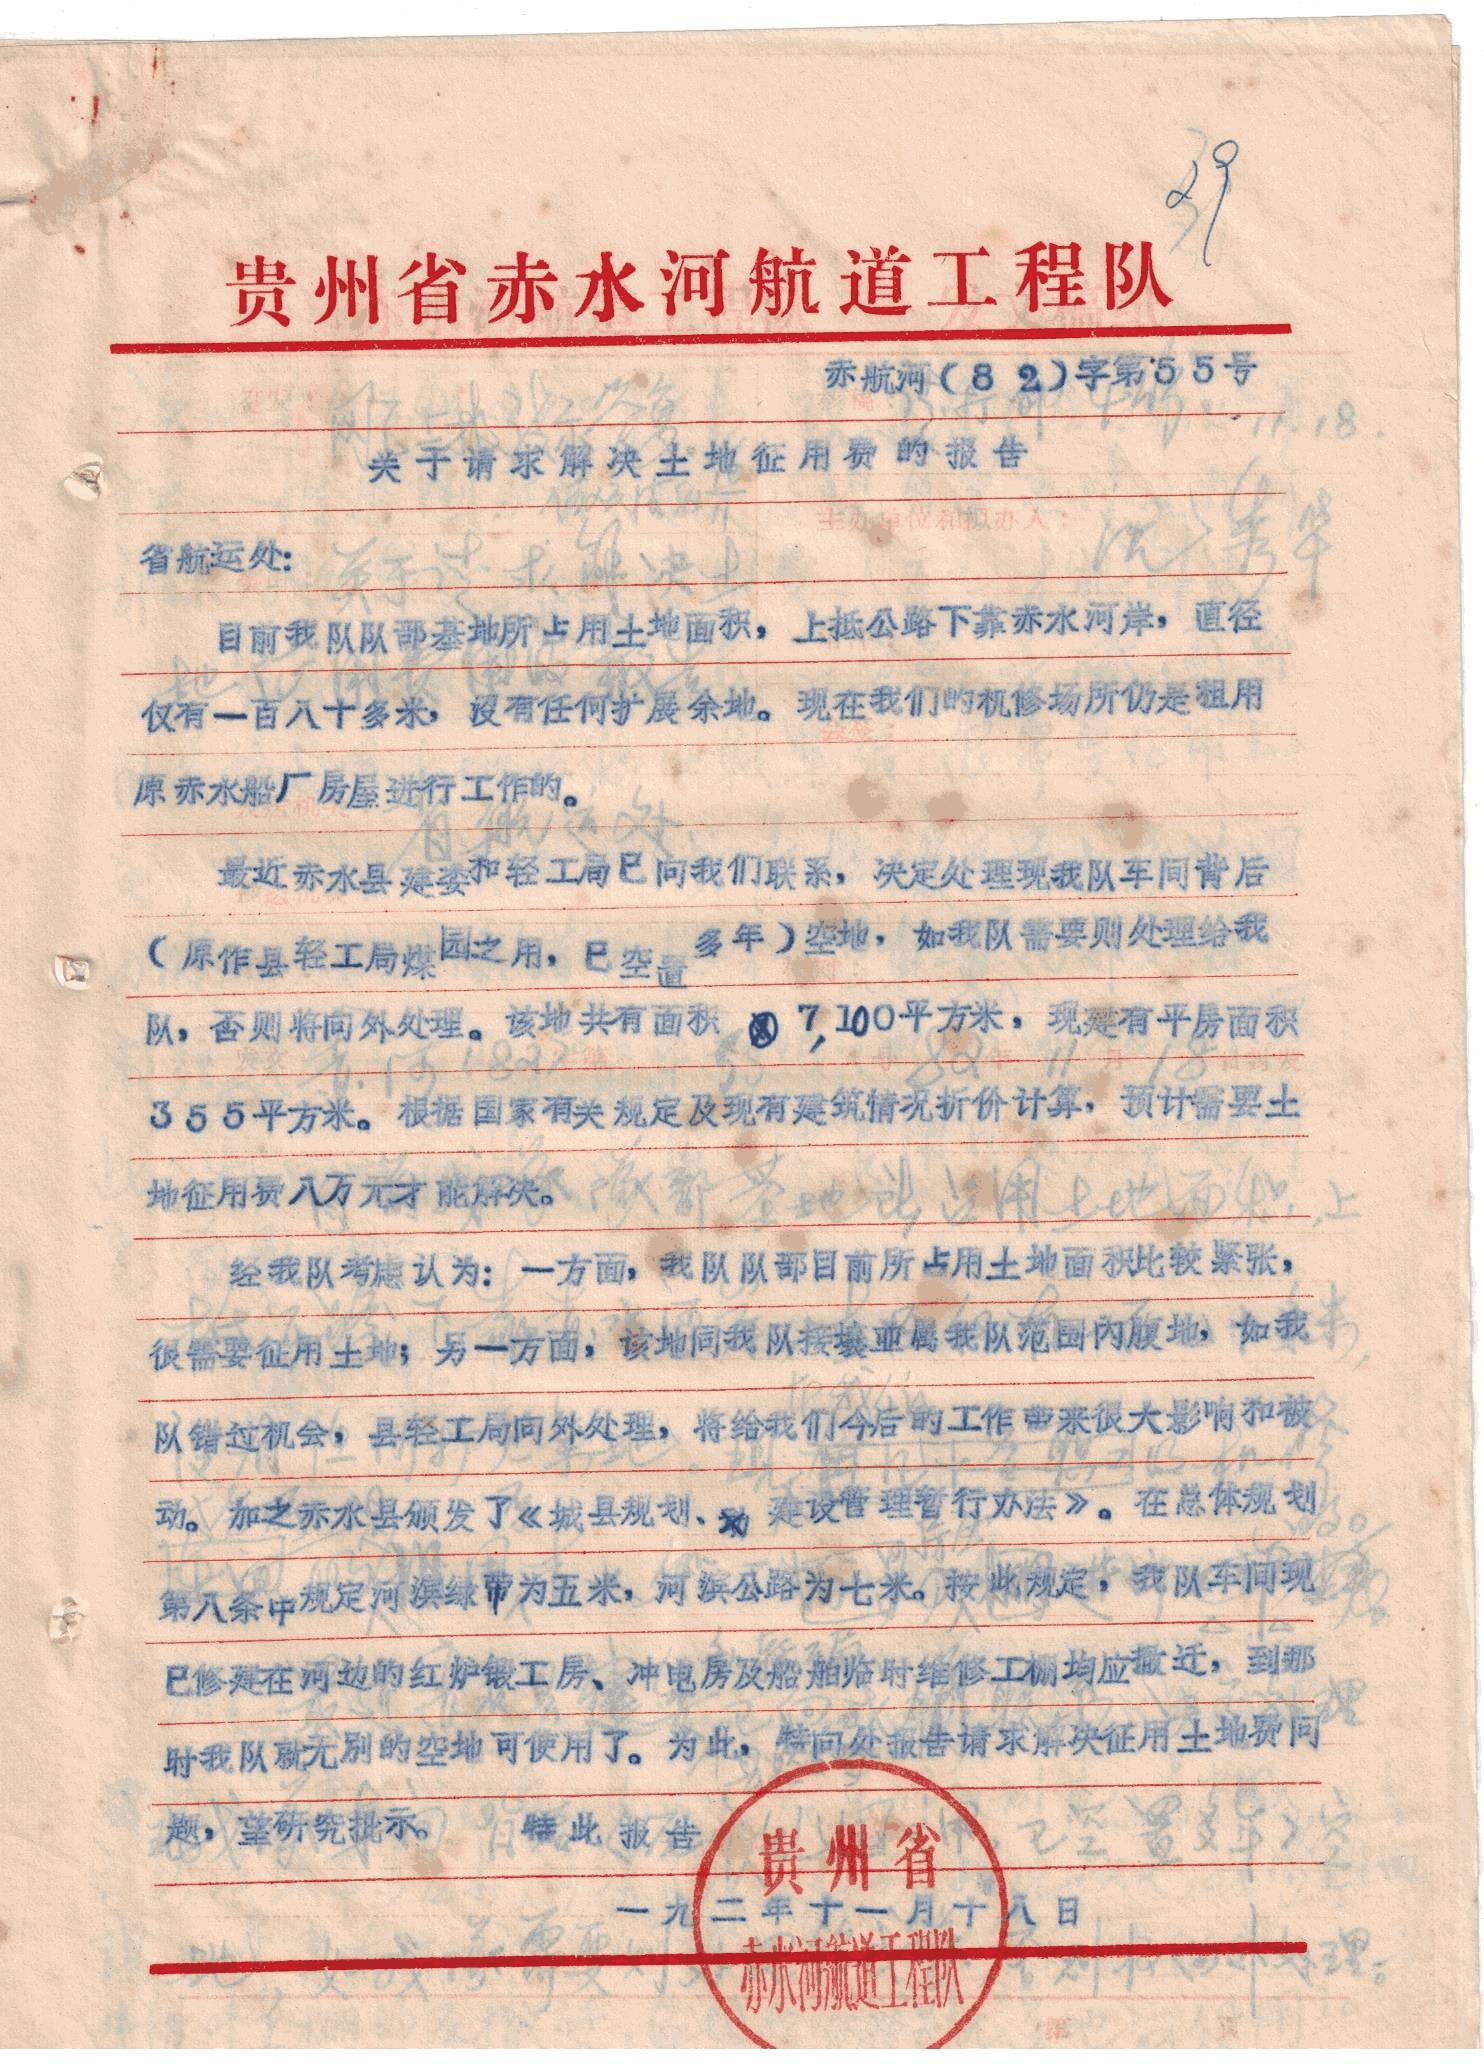 39
贵州省赤水河航道工程队
赤航河(82)字第55号
关于请求解决土地征用费的报告
省航运处:
目前我队队部基地所占用土地面积,上抵公路下靠赤水河岸,直径
仅有一百八十多米,没有任何扩展余地。现在我们的机修场所仍是租用
原赤水船厂房屋进行工作的。
最近赤水县建委和轻工局已向我们联系,决定处理现我队车间背后
(原作县轻工局煤园之用,已空置多年)空地,如我队需要则处理给我
队,否则将向外处理。该地共有面积 7,100平方米,现建有平房面积
355平方米。根据国家有关规定及现有建筑情况折价计算,预计需要土
地征用费八万元才能解决。
经我队考虑认为:一方面,我队队部目前所占用土地面积比较紧张,
很需要征用土地;另一方面,该地同我队接壤並属我队范围内腹地,如我
队错过机会,县轻工局向外处理,将给我们今后的工作带来很大影响和被
动。加之赤水县颁发了《城县规划、建设管理暂行办法》。在总体规划
第八条中规定河滨绿带为五米,河滨公路为七米。按此规定,我队车间现
已修建在河边的红炉锻工房、冲电房及船舶临时维修工棚均应撤迁,到那
时我队就无别的空地可使用了。为此,特向处报告请求解决征用土地费问
题,望研究批示。 特此报告
贵州省
一九二年十一月十八日
赤水河航道工程队